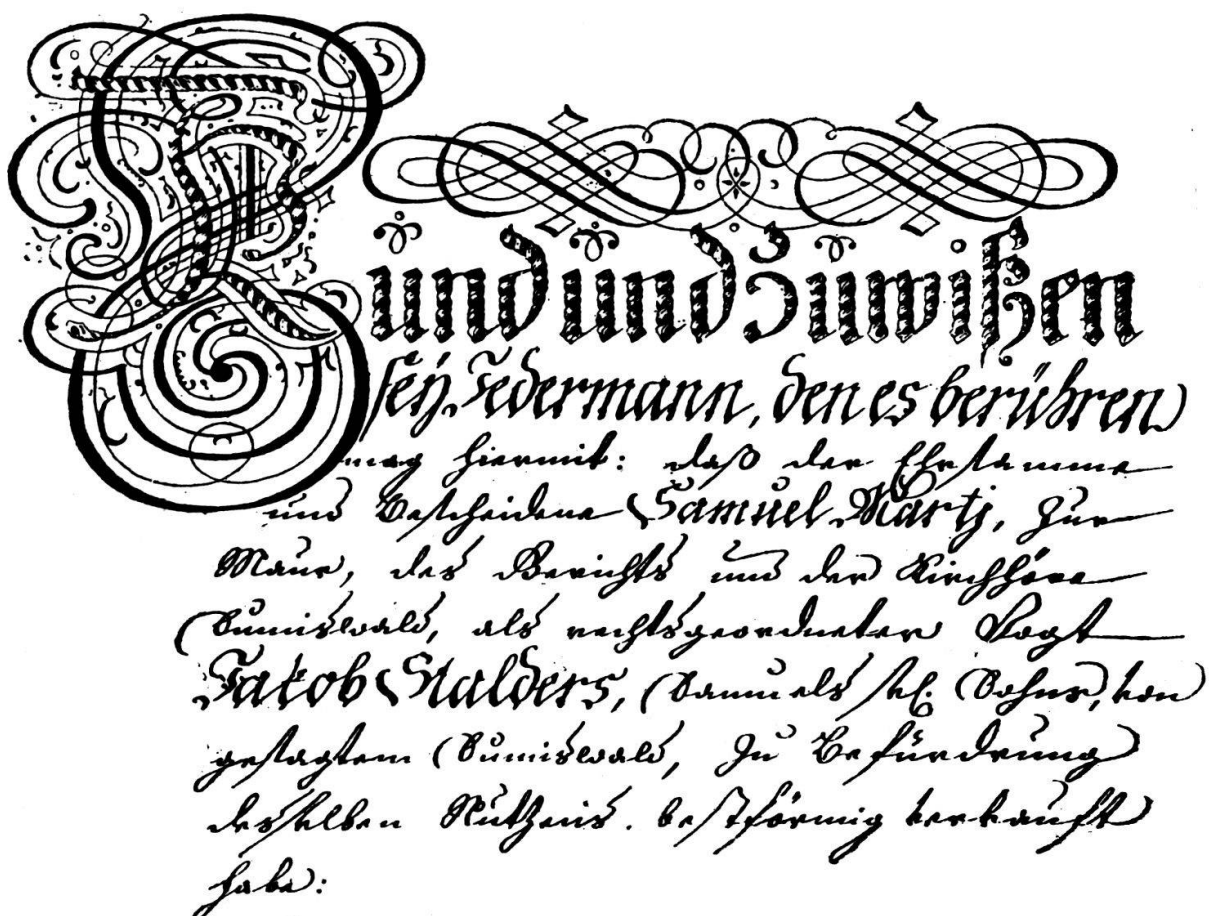 Kund und Zuwißen
seÿ Jedermann, den es berühren
mag hiermit: daß der Ehrsamme
und Bescheidene Samuel Martj, zur
Maur, des Gerichts und der Kirchhöre
Sumiswald, als rechtsgeordneter Vogt
Jakob Stalders, Samuels sel. Sohns, von
gesagtem Sumiswald, zu Befürdrung
desselben Nutzens. bestförmig verkauft
habe: